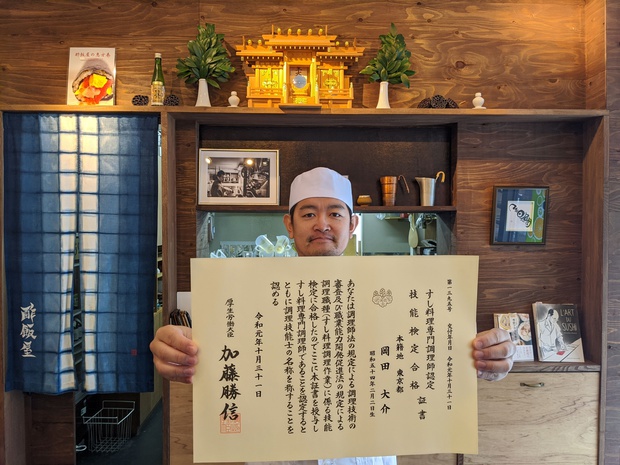 第一三九五号 交付年月日 令和元年十月三十一日
すし料理専門調理師認定
技能検定合格証書
本籍地 東京都
岡田 大介
昭和五十四年二月二日生
あなたは調理師法の規定による調理技術の
審査及び職業能力開発促進法の規定による
調理職種(すし料理調理作業)に係る技能
検定に合格したのでここに本証書を授与し
すし料理専門調理師であることを認定すると
ともに調理技能士の名称を称することを
認める
令和元年十月三十一日
厚生労働大臣
加藤勝信
酢飯屋
L'ART
DU
SUSHI